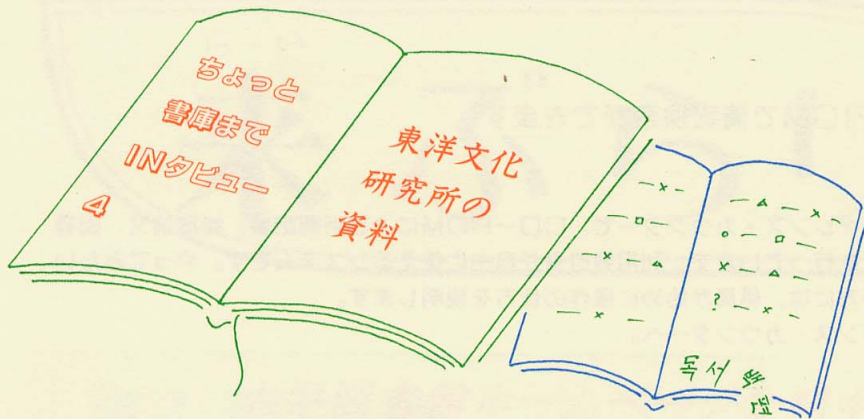 ちょっと
書庫まで
INタビュー
4
東洋文化
研究所の
資料
독서 백편